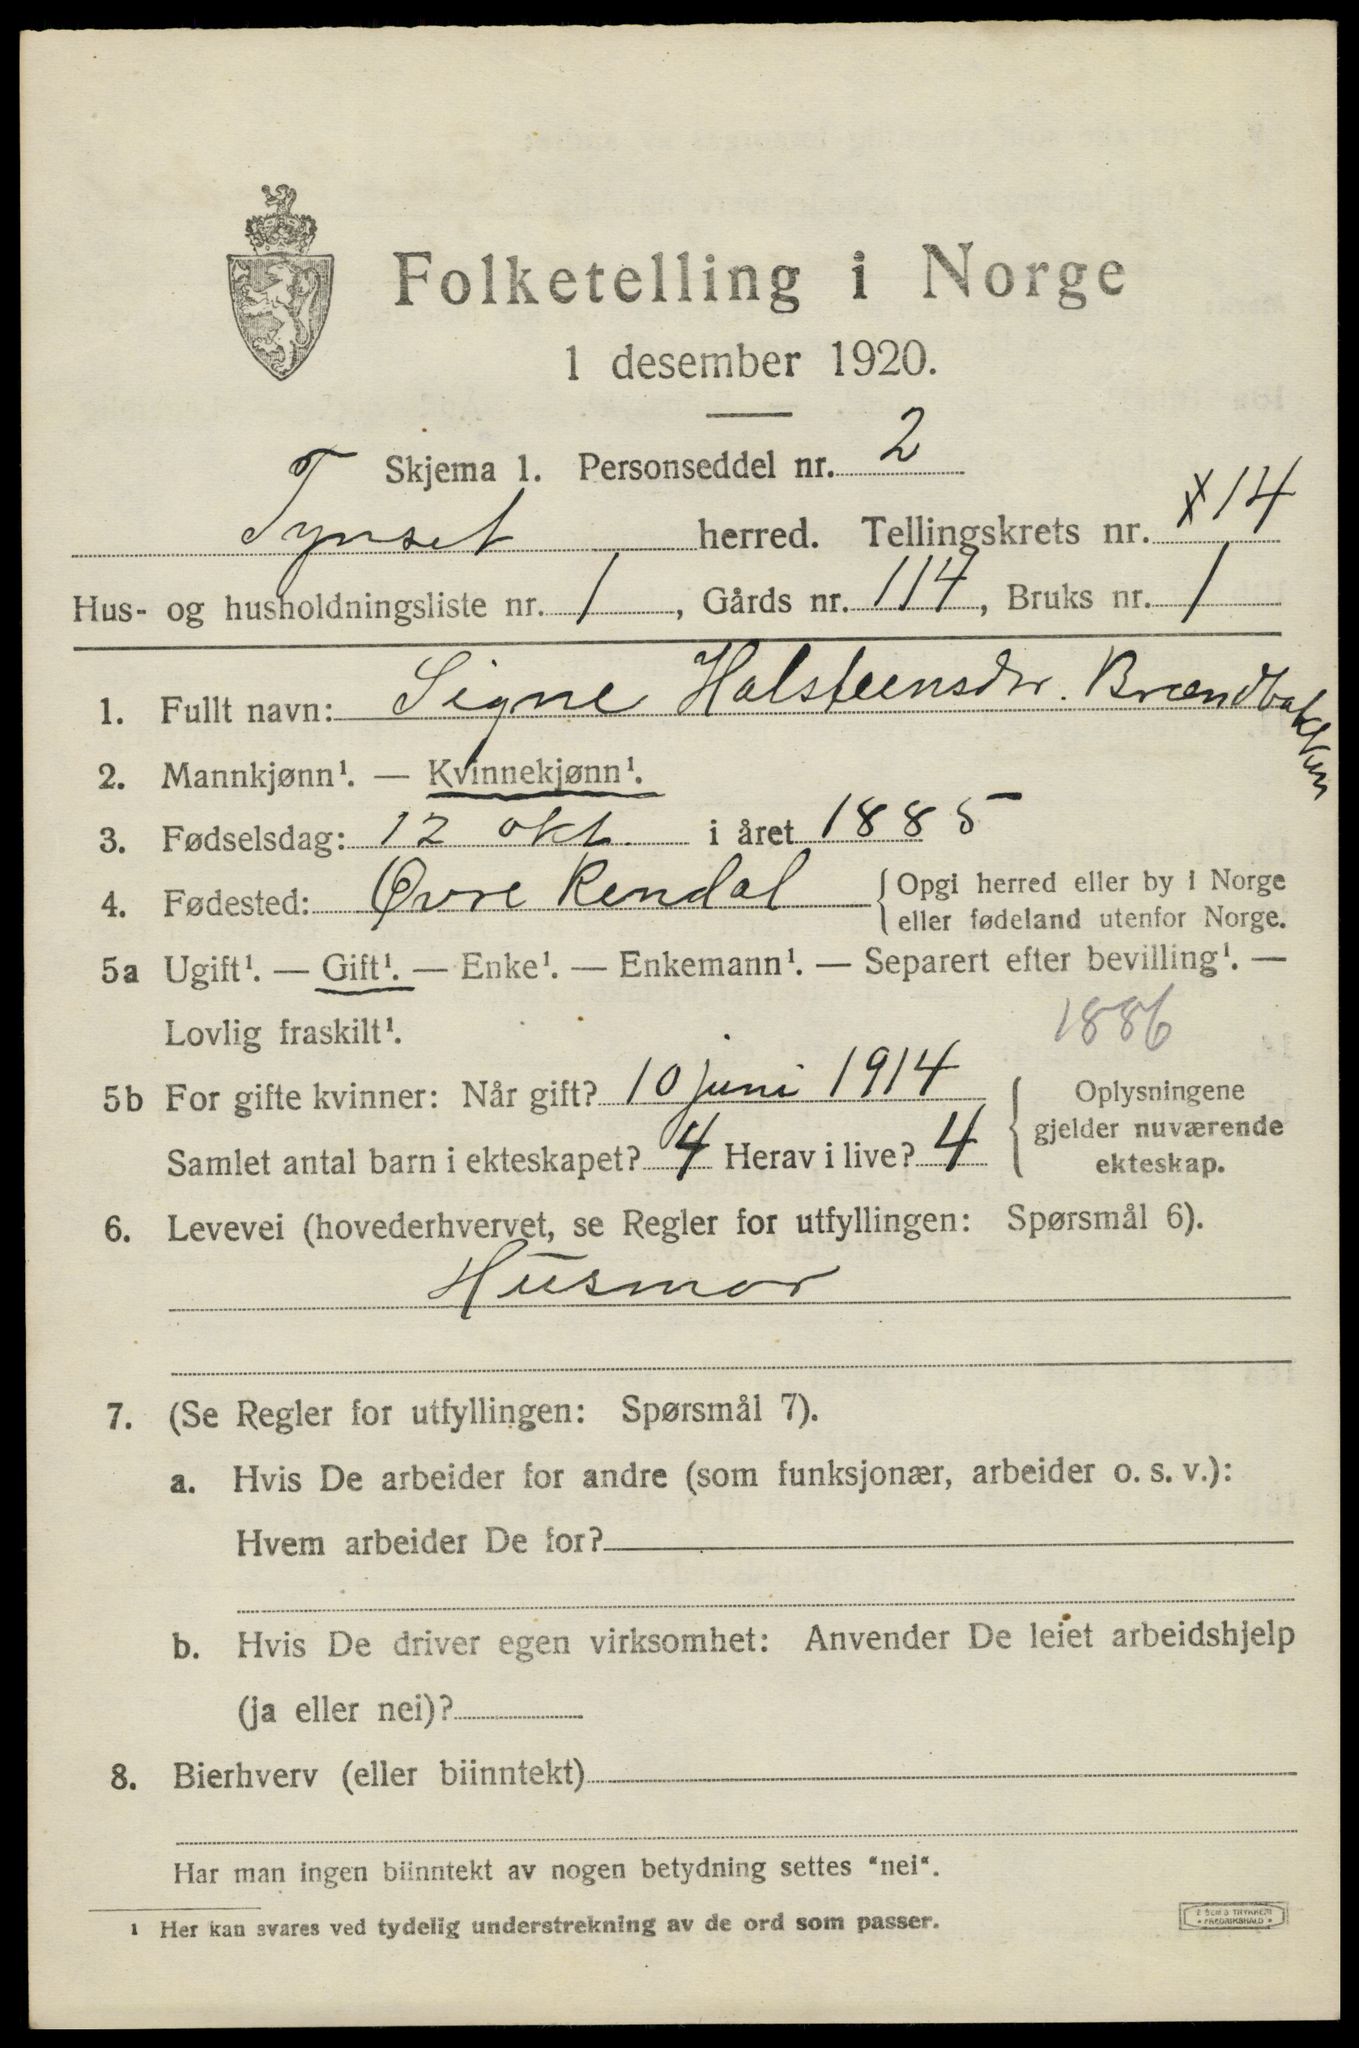 Folketelling i Norge
1 desember 1920.
Skjema 1. Personseddel nr. 2
Tynset herred. Tellingskrets nr. 14
Hus- og husholdningsliste nr. 1, Gårds nr. 114, Bruks nr. 1
1. Fullt navn: Signe Halsteensdr. Brændbakken
2. Mannkjønn¹. — Kvinnekjønn¹.
3. Fødselsdag: 12 okt. i året 1885
4. Fødested: Øvre Rendal { Opgi herred eller by i Norge
eller fødeland utenfor Norge.
5a Ugift¹. — Gift¹. — Enke¹. — Enkemann¹. — Separert efter bevilling¹. —
Lovlig fraskilt¹.
1886
5b For gifte kvinner: Når gift? 10 juni 1914 { Oplysningene
gjelder nuværende
ekteskap.
Samlet antal barn i ekteskapet? 4 Herav i live? 4
6. Levevei (hovederhvervet, se Regler for utfyllingen: Spørsmål 6).
Husmor
7. (Se Regler for utfyllingen: Spørsmål 7).
a. Hvis De arbeider for andre (som funksjonær, arbeider o. s. v.):
Hvem arbeider De for?
b. Hvis De driver egen virksomhet: Anvender De leiet arbeidshjelp
(ja eller nei)?
8. Bierhverv (eller biinntekt)
Har man ingen biinntekt av nogen betydning settes "nei".
¹ Her kan svares ved tydelig understrekning av de ord som passer.
FREDRIKSHALD